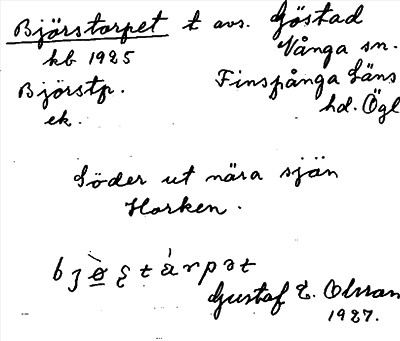 Björstorpet t avs. Göstad
kb 1925 Vånga sn.
Björstp. Finspånga Läns
ek. hd. Ögl
Söder ut nära sjön
Horken.
Gustaf E. Olsson
1927.